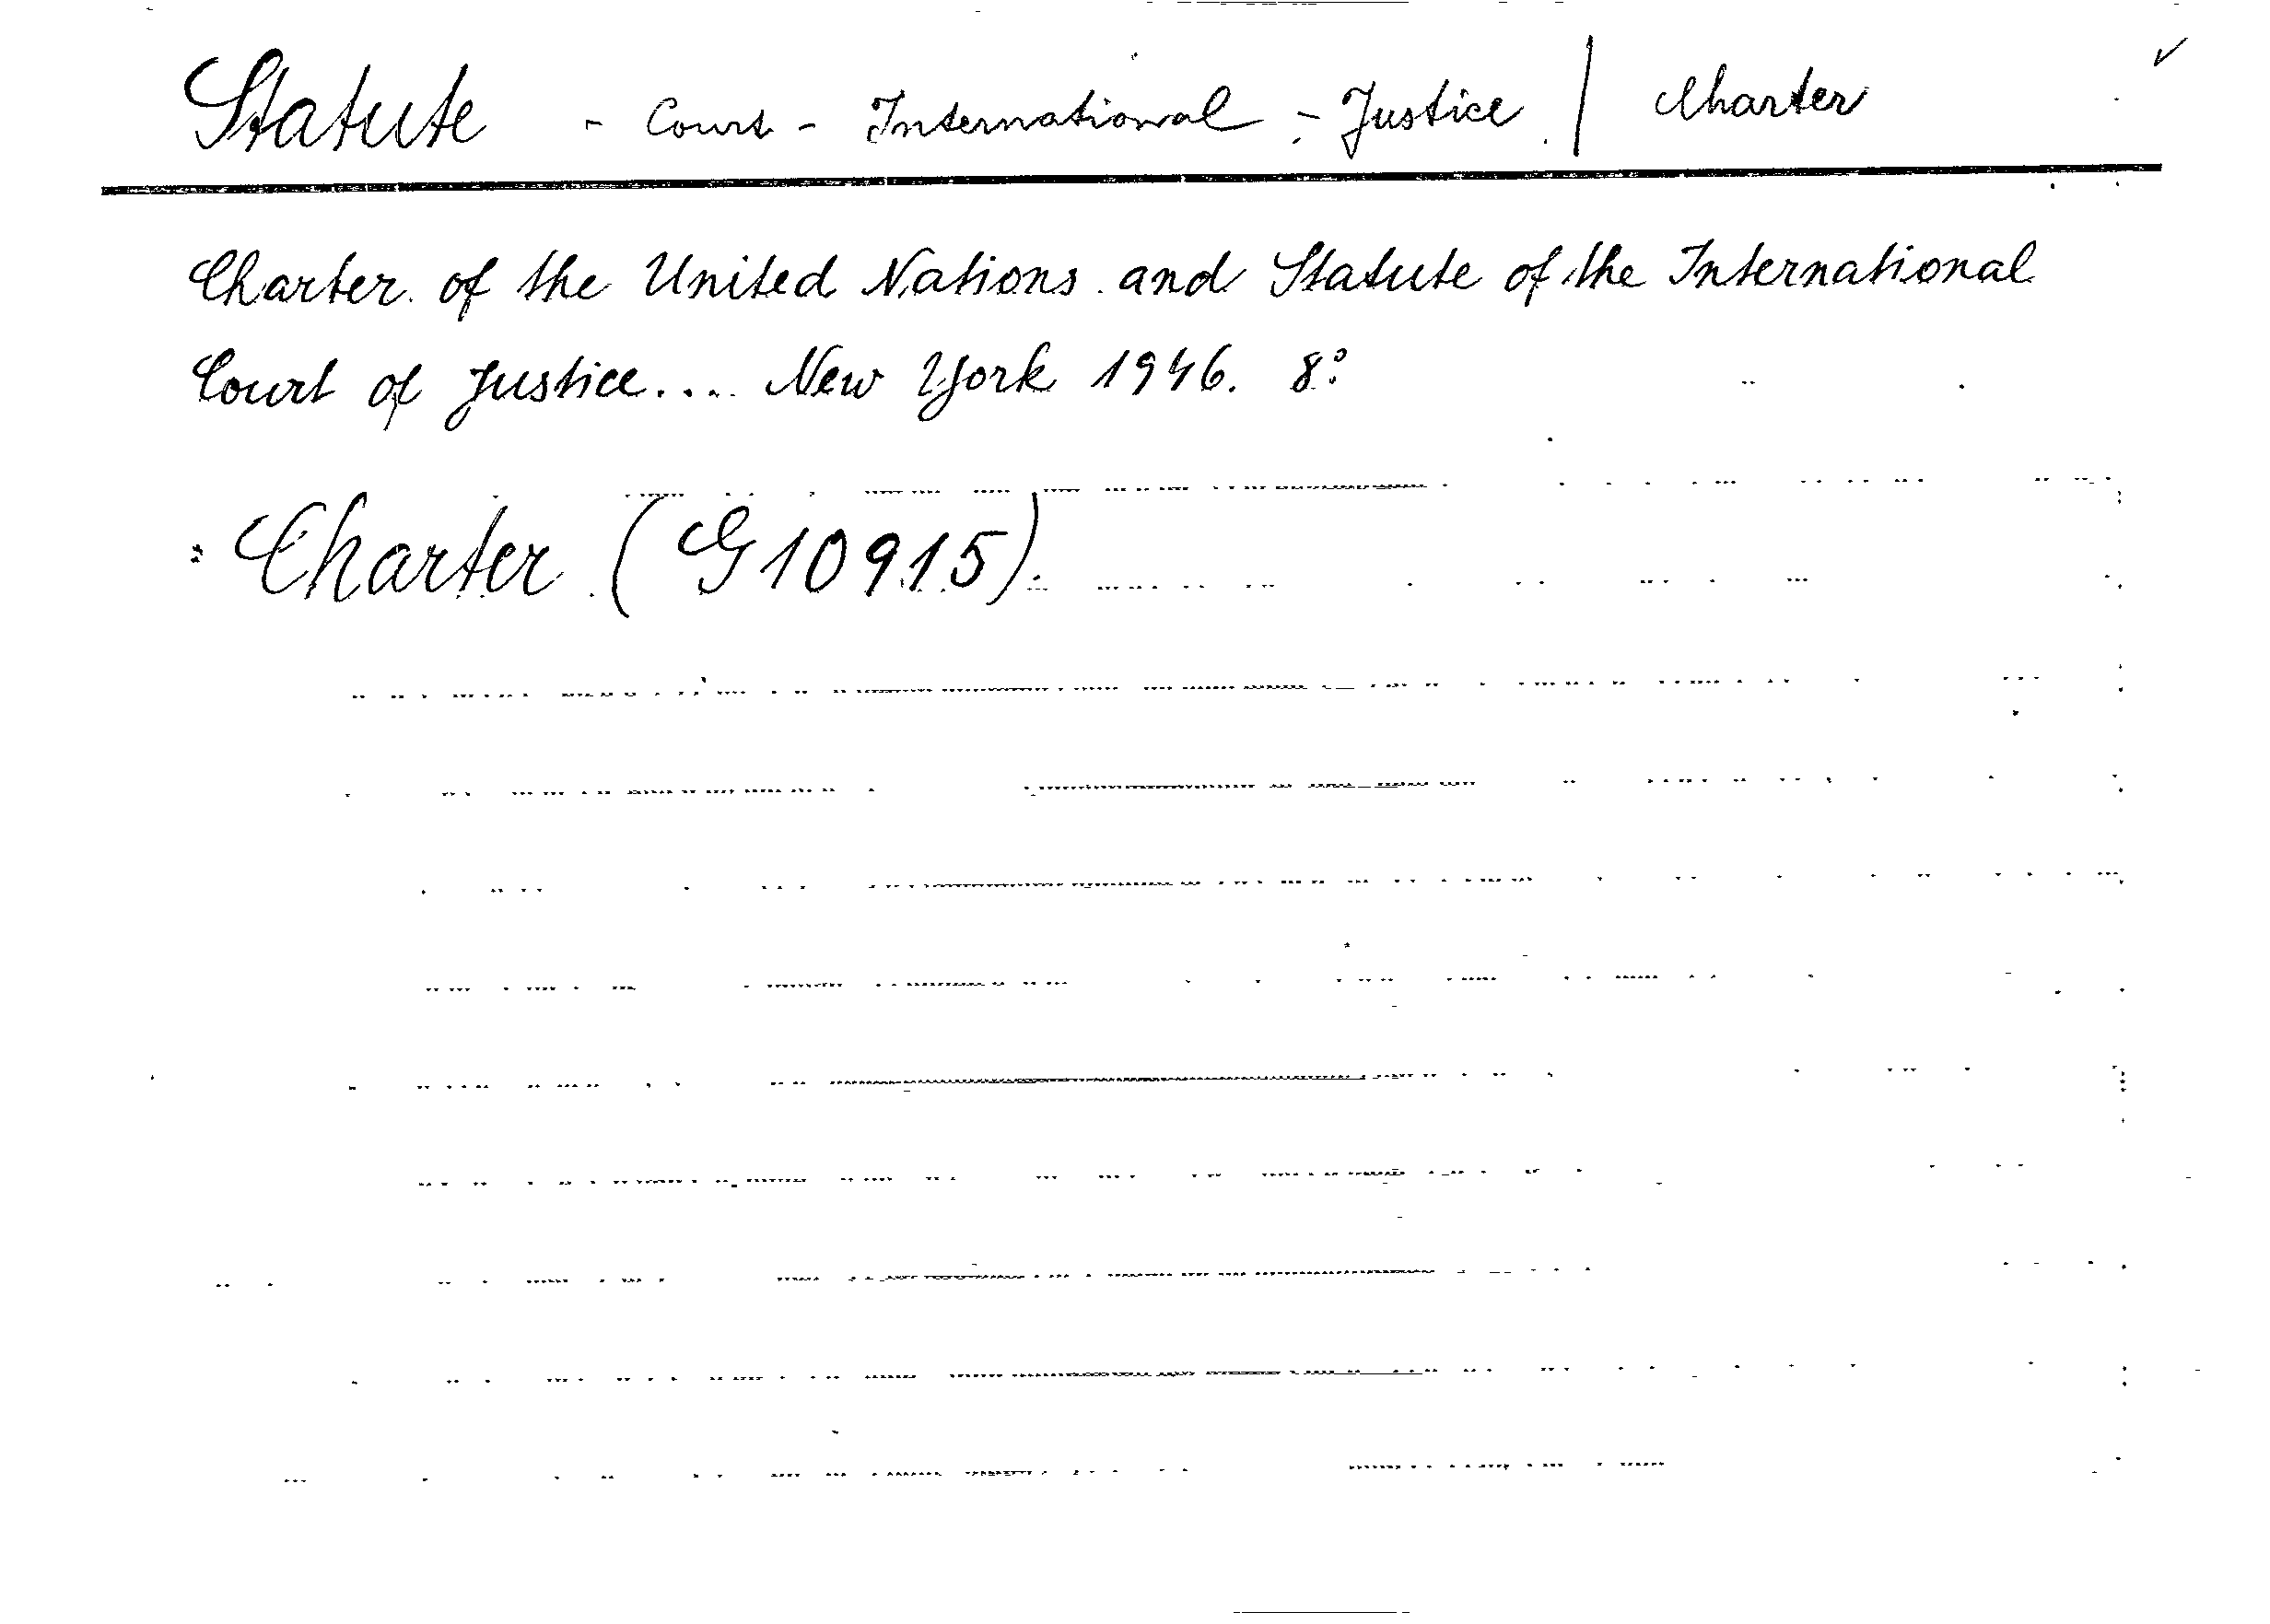 Statute - Court - International - Justice / Charter ✓
Charter of the United Nations and Statute of the International
Court of Justice.... New York 1946. 8°
= Charter (G10915)